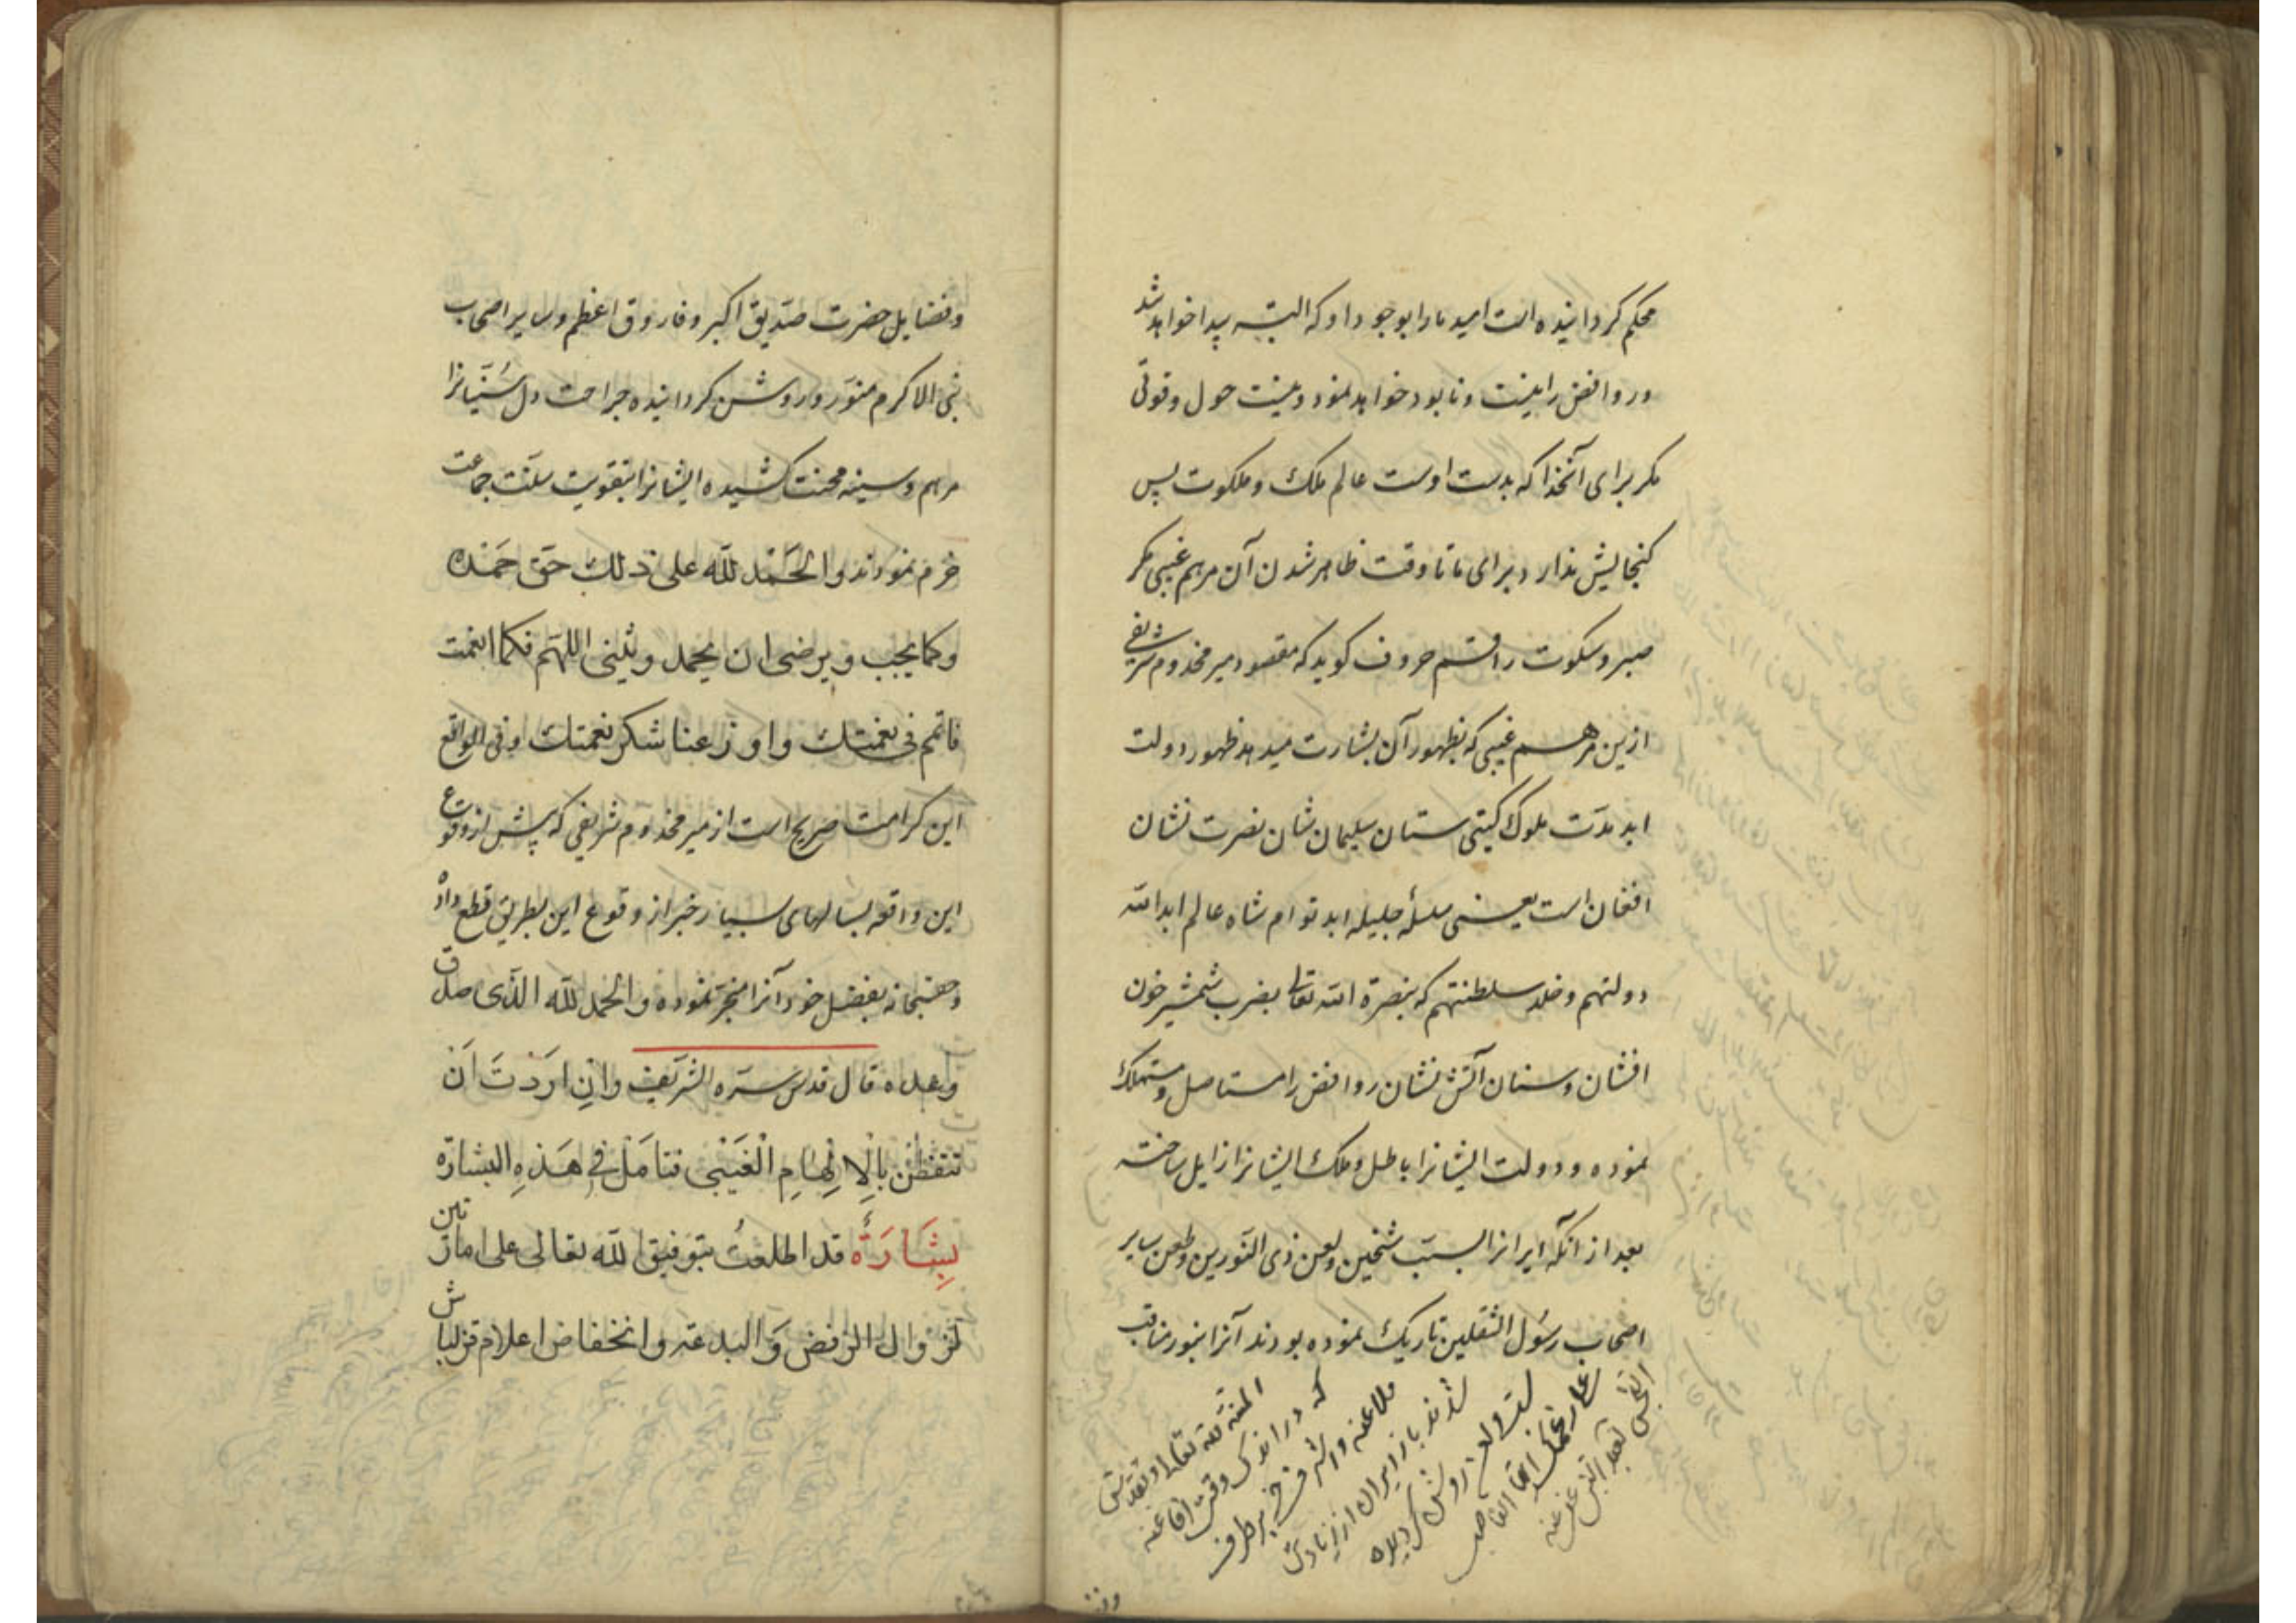 محکم کردانیده است امید ما را بوجود او که البته پیدا خواهد شد
و روافض را نیست و نابود خواهد نمود و نیست حول و قوتی
مکر برای آنخدا که بدست اوست عالم ملک و ملکوت پس
کنجایش ندارد برای ما تا وقت ظاهر شدن آن مرهم غیبی مکر
صبر و سکوت راقم حروف کوید که مقصود میر مخدوم شریفی
ازین مرهم غیبی که بظهور آن بشارت میدهد ظهور دولت
ابد مدت ملوک کیتی ستان سلیمان شان نصرت نشان
افغان است یعنی سلسلهٔ جلیله ابد توام شاه عالم ابد الله
دولتهم و خلد سلطنتهم که بنصرة الله تعالی بضرب شمشیر خون
افشان و سنان آتش نشان روافض را مستاصل و مستهلک
نموده و دولت ایشانرا باطل و ملک ایشانرا زایل ساخته
بعد از آنکه ایرانرا بسبب شیخین و لعن ذی النورین و طعن سایر
اصحاب رسول الثقلین تاریک نموده بودند آنرا بنور مناقب
المنة لله تعالی و تقدس
که در اندک وقتی افاغنه
ملاعنه و اشرف خر برطرف
شدند باز ایران از
روشن کردیده
وفضا
و فضایل حضرت صدیق اکبر و فاروق اعظم و سایر اصحاب
نبی الاکرم منور و روشن کردانیده جراحت دل سنیانرا
مرهم و سینه محنت کشیده ایشانرا بتقویت سنت جماعت
خرم نمودند والحمد لله علی ذلک حق حمده
وکما یحب و یرضی ان یحمد و یثنی اللهم فکما انعمت
فاتمم فی نعمتک و اوزعنا شکر نعمتک و فی الواقع
این کرامت صریح است از میر مخدوم شریفی که پیش از وقوع
این واقعه بسالهای بسیار خبر از وقوع این بطریق قطع داده
وحقسبحانه بفضل خود آنرا منجز نموده و الحمد لله الذی صدق
وعده قال قدس سره الشریف وان اردت ان
تتفطن بالالهام الغیبی فتامل فی هذه البشارة
بشارة قد اطلعت بتوفیق الله تعالی علی امارتین
لزوال الرفض و البدعه و انخفاض اعلام قزلباش